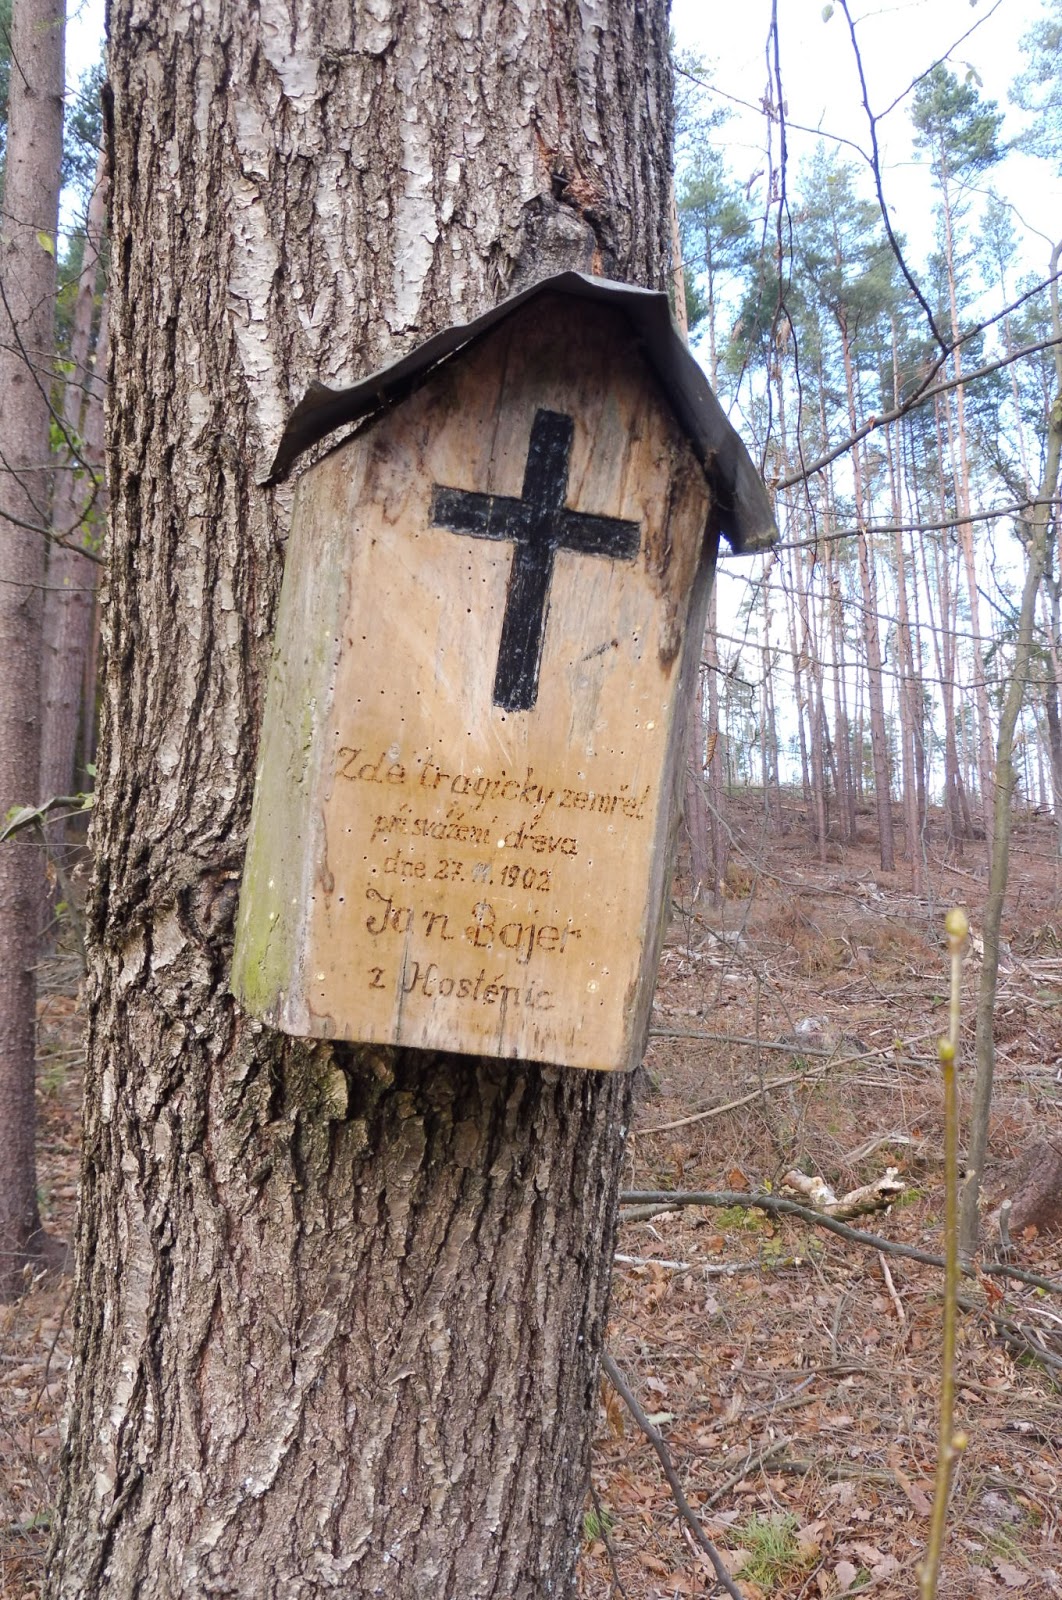 Zde tragicky zemřel
při svážení dřeva
dne 27. 11. 1902
Jan Bajer
z Hostěnic